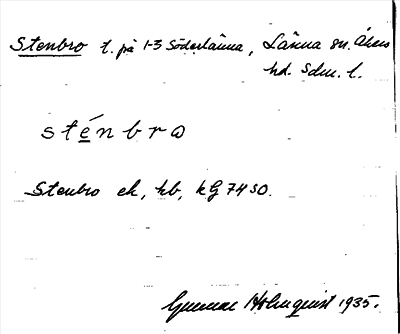 Stenbro t. på 1-3 Söderlänna, Länna sn. Åkers
hd. Sdm. l.
sténbrω
Stenbro ek, hb, kG 74 SO.
Gunnar Holmquist 1935.